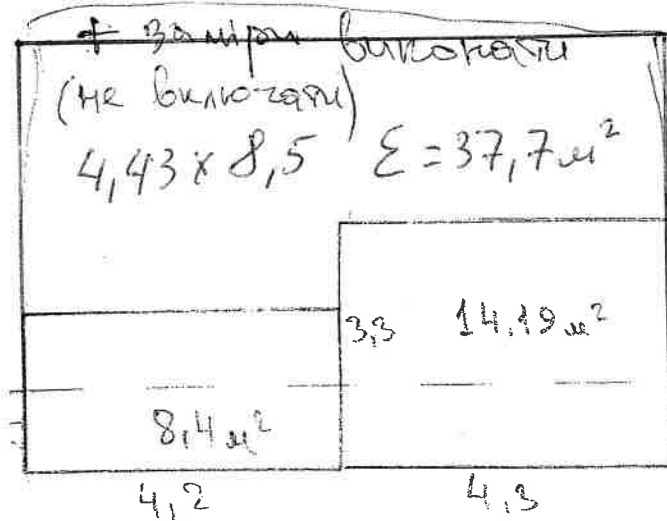 + заміри виконати
(не включати)
4,43 х 8,5 Σ = 37,7 м²
3,3 14,19 м²
8,4 м²
4,2 4,3